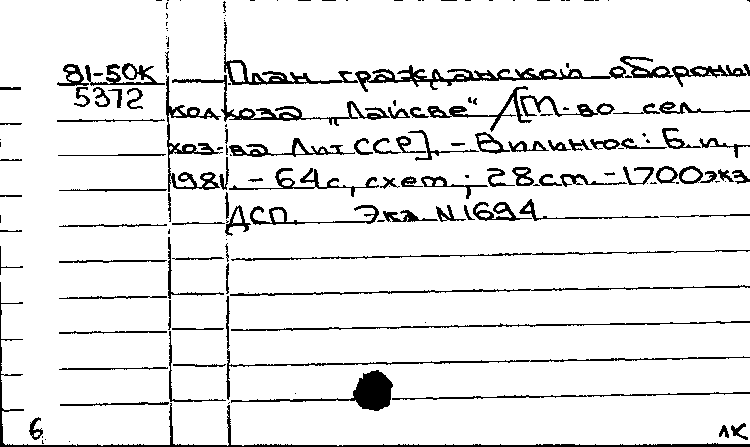 81-50К План гражданской обороны
5372 колхоза „Лайсве“ / [М-во сел.
хоз-ва Лит ССР]. - Вильнюс: Б.и.,
1981. - 64с., схем ; 28 см. - 1700экз
ДСП. Экз N.1694.
6 ЛК